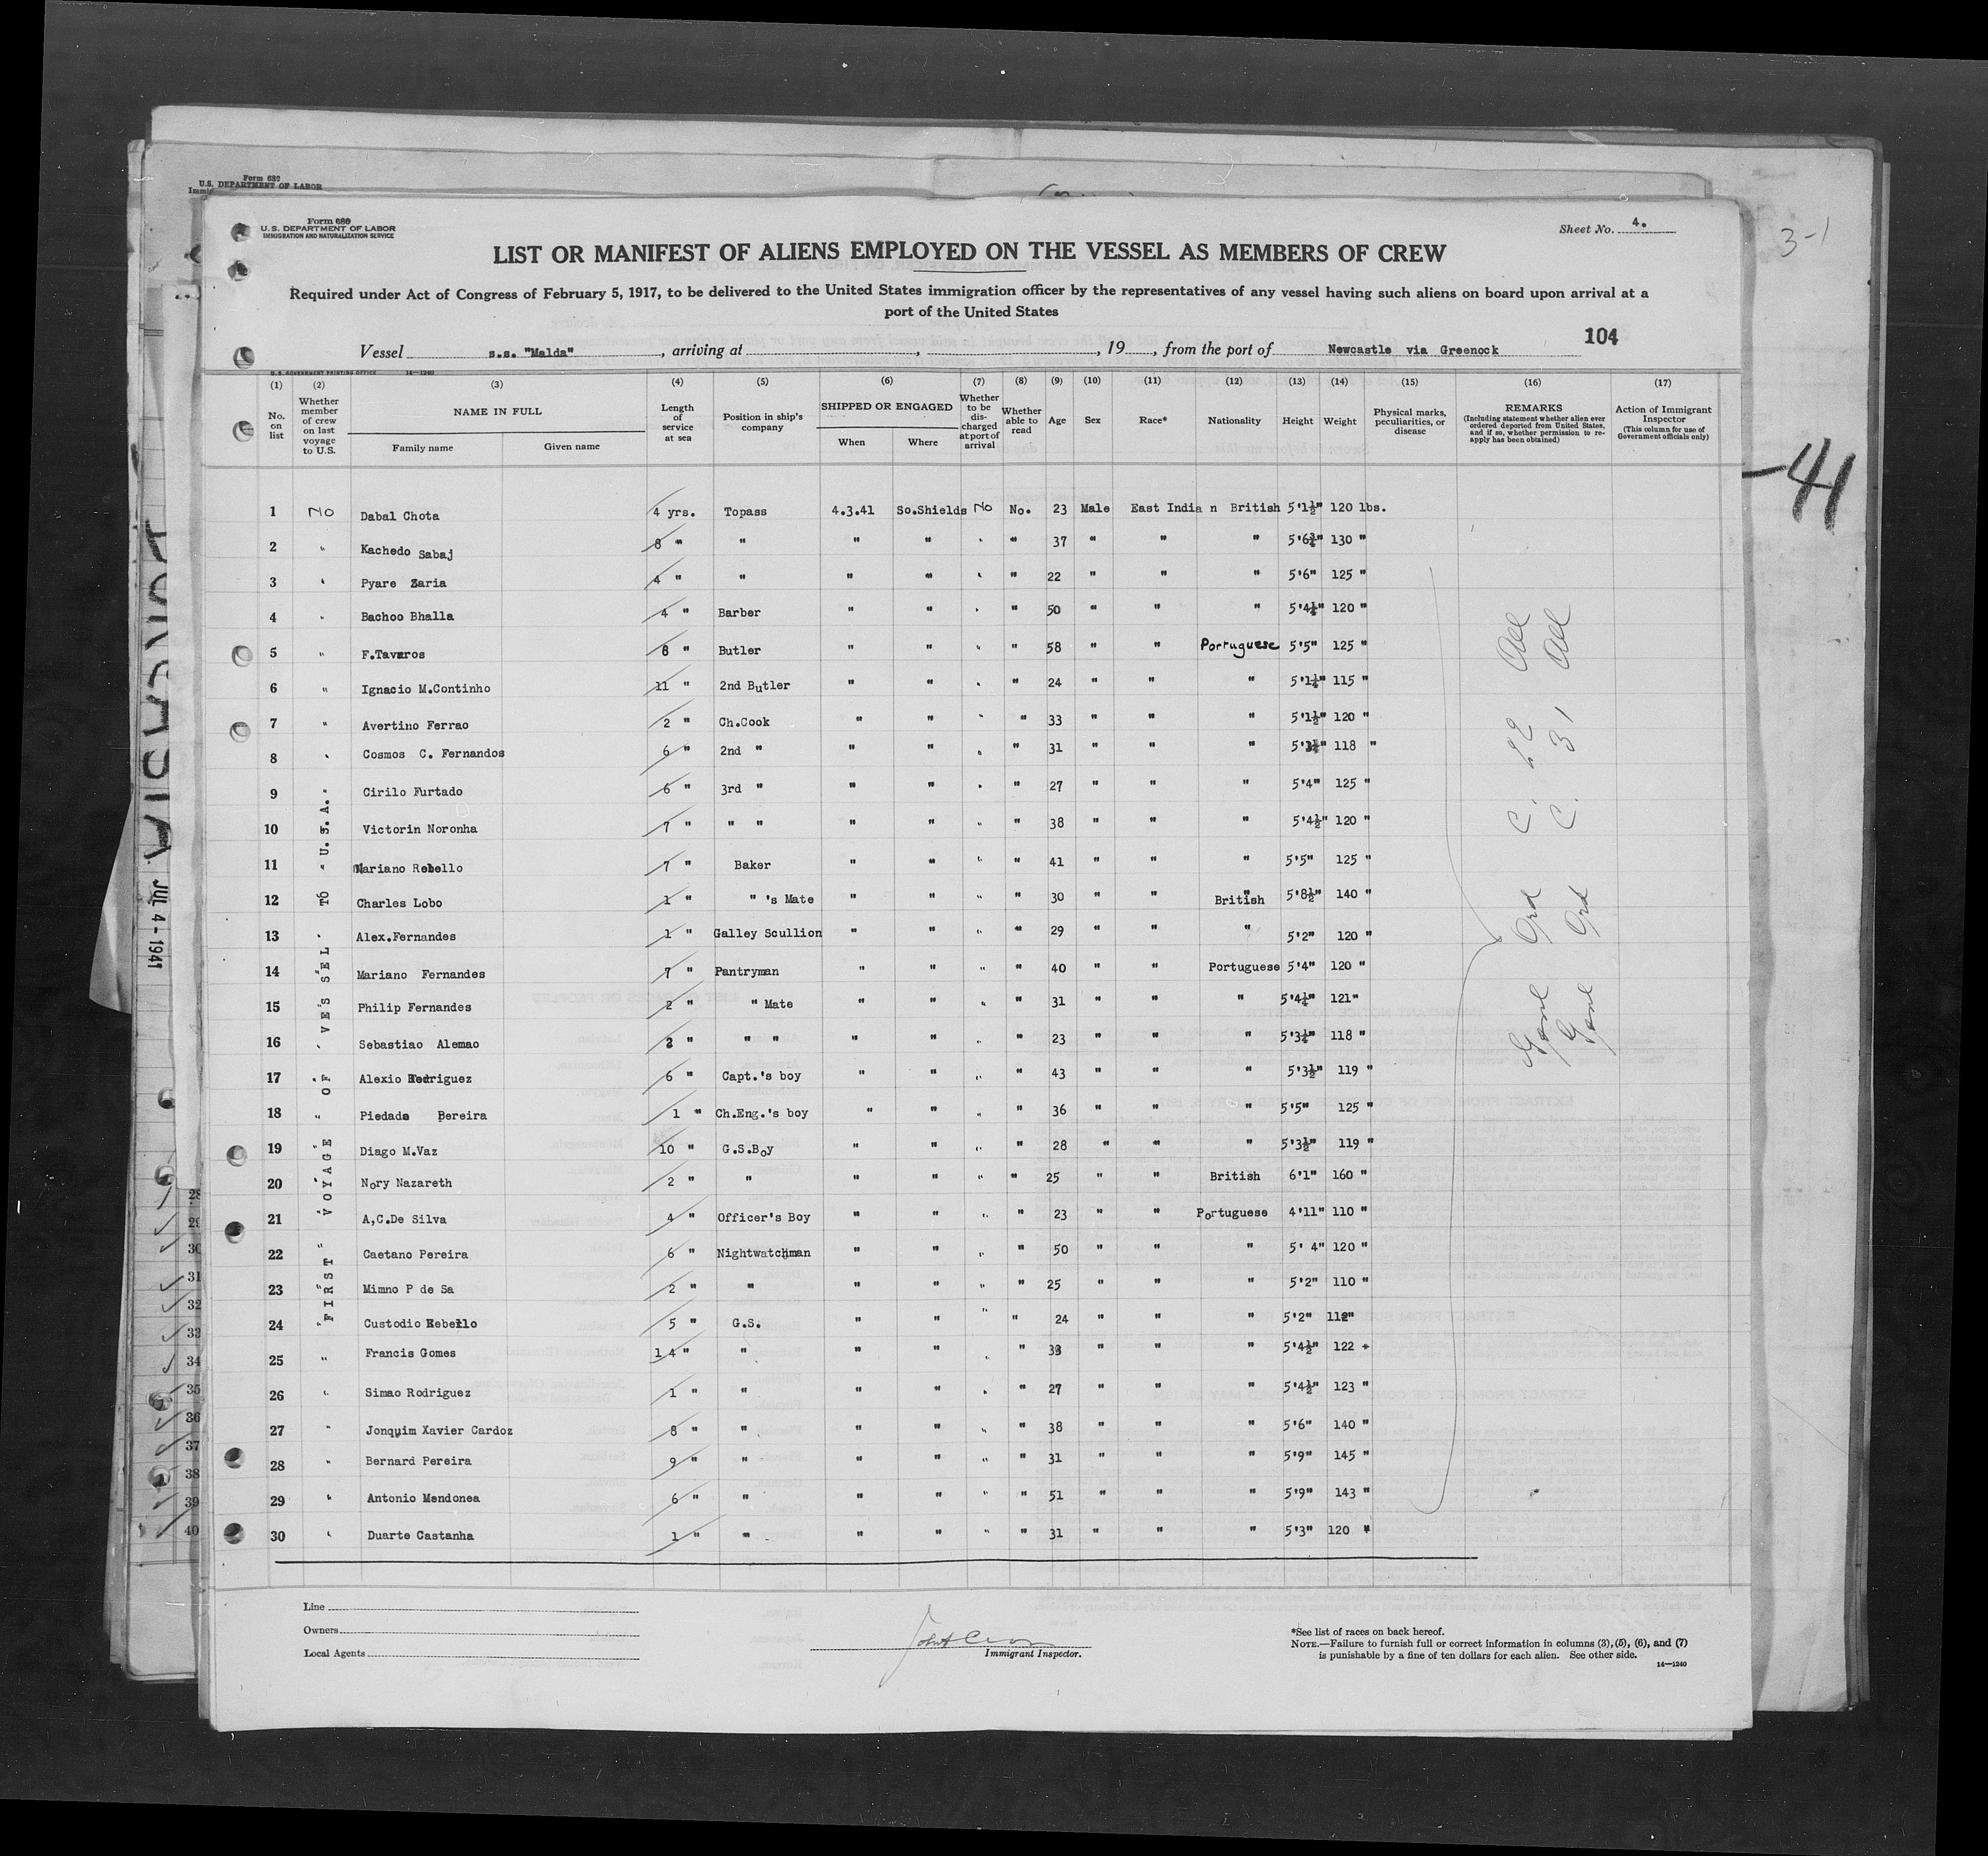 Form 680
U.S. DEPARTMENT OF LABOR
Form 680
U.S. DEPARTMENT OF LABOR
IMMIGRATION AND NATURALIZATION SERVICE
Sheet No. 4.
3-1
LIST OR MANIFEST OF ALIENS EMPLOYED ON THE VESSEL AS MEMBERS OF CREW
Required under Act of Congress of February 5, 1917, to be delivered to the United States immigration officer by the representatives of any vessel having such aliens on board upon arrival at a
port of the United States
104
Vessel s.s. "Malda", arriving at , , 19 , from the port of Newcastle via Greenock
U.S. GOVERNMENT PRINTING OFFICE 14-1240
(1) (2) (3) (4) (5) (6) (7) (8) (9) (10) (11) (12) (13) (14) (15) (16) (17)
No. on list
Whether member of crew on last voyage to U.S.
NAME IN FULL
Family name Given name
Length of service at sea
Position in ship's company
SHIPPED OR ENGAGED
When Where
Whether to be discharged at port of arrival
Whether able to read
Age
Sex
Race*
Nationality
Height
Weight
Physical marks, peculiarities, or disease
REMARKS
(Including statement whether alien ever ordered deported from United States, and if so, whether permission to reapply has been obtained)
Action of Immigrant Inspector
(This column for use of Government officials only)
-41
1 No Dabal Chota 4 yrs. Topass 4.3.41 So.Shields No No. 23 Male East Indian British 5'1½" 120 lbs.
2 " Kachedo Sabaj 8 " " " " " " 37 " " " 5'6¾" 130 "
3 " Pyare Zaria 4 " " " " " " 22 " " " 5'6" 125 "
4 " Bachoo Bhalla 4 " Barber " " " " 50 " " " 5'4¼" 120 "
5 " F.Tavaros 8 " Butler " " " " 58 " " Portuguese 5'5" 125 "
6 " Ignacio M.Continho 11 " 2nd Butler " " " " 24 " " " 5'1¼" 115 "
7 " Avertino Ferrao 2 " Ch.Cook " " " " 33 " " " 5'1½" 120 "
8 " Cosmos C. Fernandos 6 " 2nd " " " " " 31 " " " 118 "
9 " Cirilo Furtado 6 " 3rd " " " " " 27 " " " 5'4" 125 "
10 Victorin Noronha 7 " " " " " " " 38 " " " 5'4½" 120 "
11 " Mariano Rebello 7 " Baker " " " " 41 " " " 5'5" 125 "
12 Charles Lobo 1 " " 's Mate " " " " 30 " " British 5'8½" 140 "
13 " Alex.Fernandes 1 " Galley Scullion " " " " 29 " " " 5'2" 120 "
14 " Mariano Fernandes 7 " Pantryman " " " " 40 " " Portuguese 5'4" 120 "
15 " Philip Fernandes 2 " " Mate " " " " 31 " " " 5'4¼" 121"
16 " Sebastiao Alemao 2 " " " " " " " 23 " " " 5'3¼" 118 "
17 " Alexio Rodriguez 6 " Capt.'s boy " " " " 43 " " " 5'3½" 119 "
18 " Piedade Pereira 1 " Ch.Eng.'s boy " " " " 36 " " " 5'5" 125 "
19 " Diago M.Vaz 10 " G.S.Boy " " " " 28 " " " 5'3½" 119 "
20 " Nory Nazareth 2 " " " " " " 25 " " British 6'1" 160 "
21 " A,C.De Silva 4 " Officer's Boy " " " " 23 " " Portuguese 4'11" 110 "
22 " Caetano Pereira 6 " Nightwatchman " " " " 50 " " " 5' 4" 120 "
23 " Mimno P de Sa 2 " " " " " " 25 " " " 5'2" 110 "
24 " Custodio Rebello 5 " G.S. " " " " 24 " " " 5'2" 112"
25 " Francis Gomes 14 " " " " " " 33 " " " 5'4½" 122 "
26 " Simao Rodriguez 1 " " " " " " 27 " " " 5'4½" 123 "
27 " Jonquim Xavier Cardoz 8 " " " " " " 38 " " " 5'6" 140 "
28 " Bernard Pereira 9 " " " " " " 31 " " " 5'9" 145 "
29 " Antonio Mendonea 6 " " " " " " 51 " " " 5'9" 143 "
30 " Duarte Castanha 1 " " " " " " 31 " " " 5'3" 120 "
FIRST VOYAGE OF VESSEL TO U.S.A.
JUL 4 - 1941
28
29
30
31
32
33
34
35
36
37
38
39
40
Line
Owners
Local Agents
Immigrant Inspector.
*See list of races on back hereof.
NOTE.—Failure to furnish full or correct information in columns (3), (5), (6), and (7)
is punishable by a fine of ten dollars for each alien. See other side.
14—1240